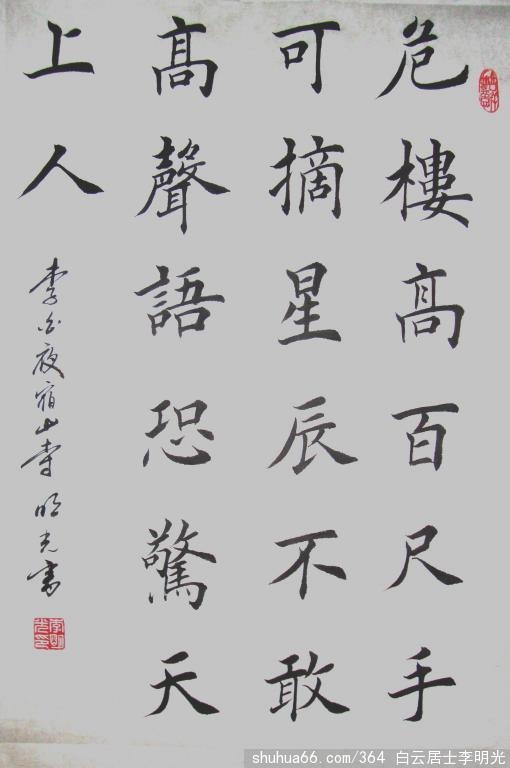 危樓高百尺手
可摘星辰不敢
高聲語恐驚天
上人
李白夜宿山寺 明光書
shuhua66.com/364 白云居士李明光